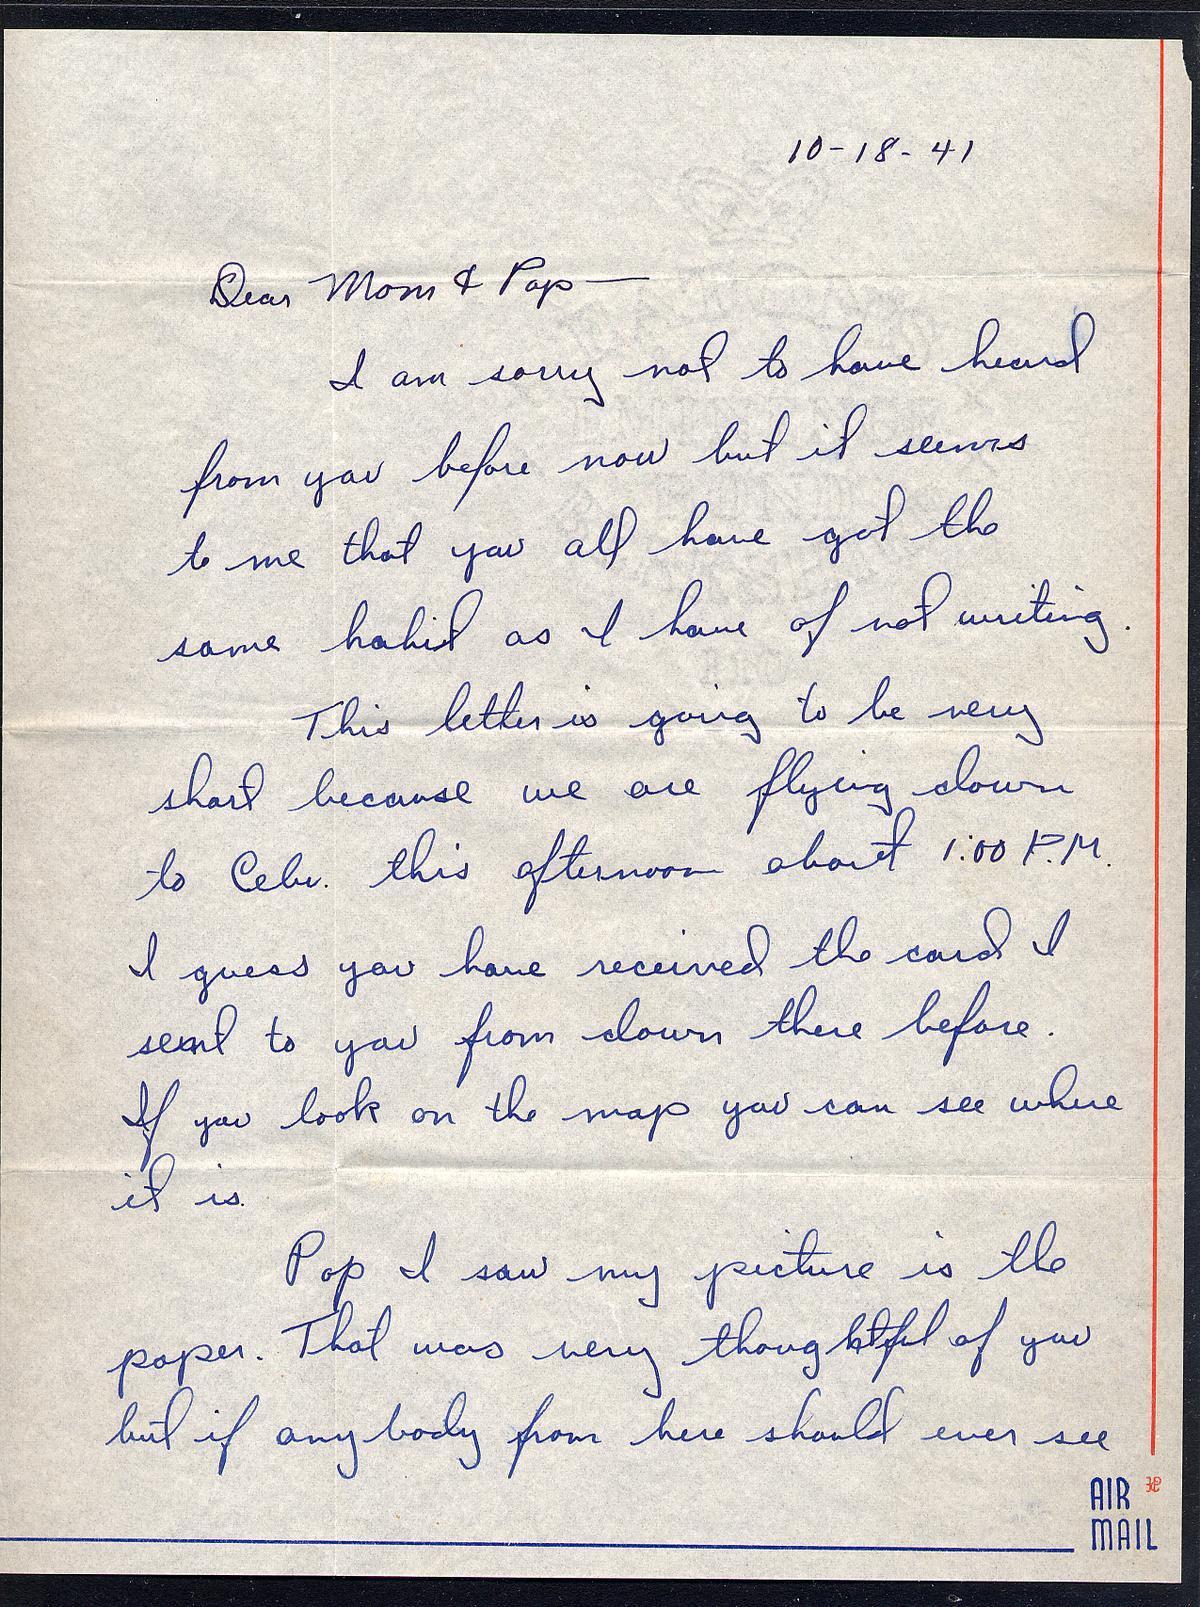 10-18-41
Dear Mom & Pop —
I am sorry not to have heard
from you before now but it seems
to me that you all have got the
same habit as I have of not writing.
This letter is going to be very
short because we are flying down
to Cebu. this afternoon about 1:00 P.M.
I guess you have received the card I
sent to you from down there before.
If you look on the map you can see where
it is.
Pop I saw my picture is the
paper. That was very thoughtful of you
but if anybody from here should ever see
AIR
MAIL